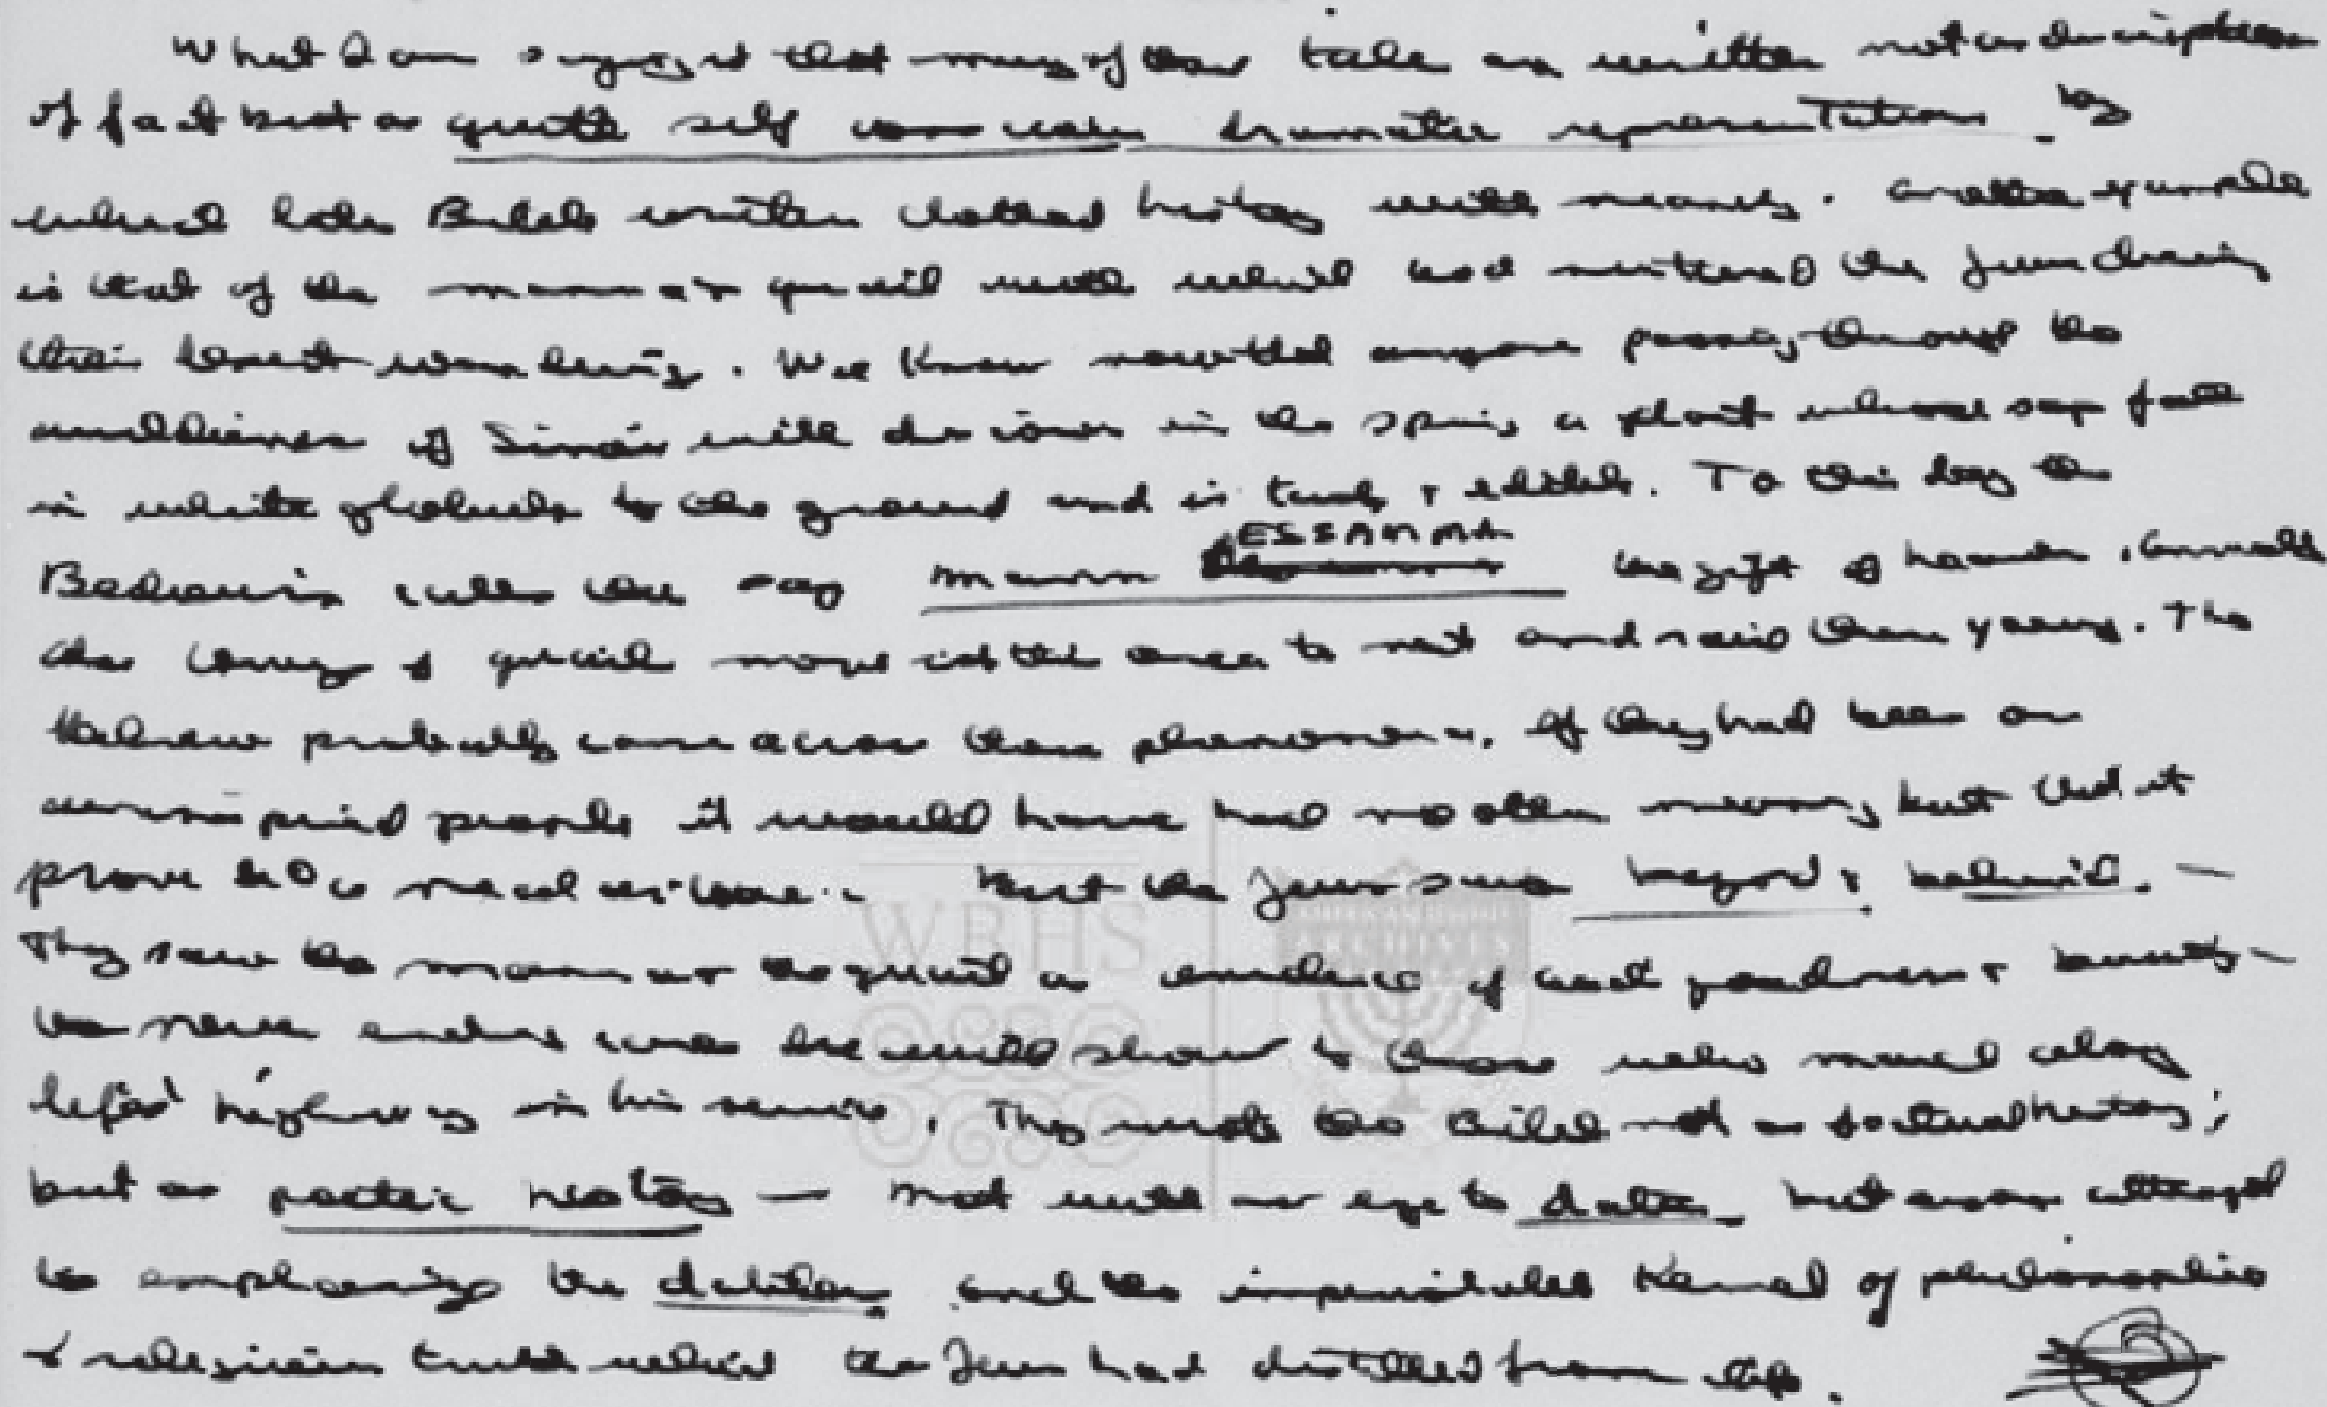 What I am suggest is that many of these tales are written not as descriptions
of fact but as quite self conscious dramatic representations by
which later Bible writers clothed history with meaning. Another example
is that of the manna + quail with which God nurtured the Jews during
their desert wandering. We know now that anyone passing through the
wilderness of Sinai will discover in the spring a plant whose sap falls
in white globules to the ground and is tasty + edible. To this day the
Bedouin calls the sap mann ESSAMMA the gift of heaven. Annually
also coveys of quail move into the area to nest and raise their young. The
Hebrews probably came across these phenomena. If they had been an
uninspired people it would have had no other meaning but that it
prove to be a meal But the Jews saw beyond & behind. —
They saw the manna + the quail as evidence of God goodness + bounty —
the never ending care he would show to those who moved along
life's highway in his service. They wrote the Bible not as factual history;
but as poetic history — not with an eye to dates but as an attempt
to emphasize the and the imperishable kernel of philosophic
& religious truth which the Jews had distilled from life.
WRHS
AMERICAN JEWISH
ARCHIVES